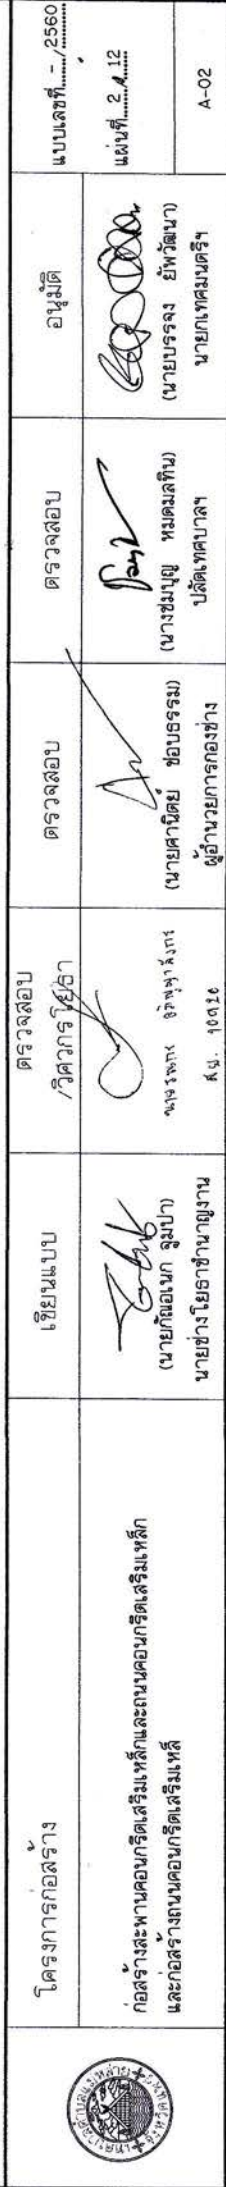 เทศบาลตำบลแม่หล่าย
จังหวัดแพร่
โครงการก่อสร้าง
ก่อสร้างสะพานคอนกรีตเสริมเหล็กและถนนคอนกรีตเสริมเหล็ก
และก่อสร้างถนนคอนกรีตเสริมเหล็
เขียนแบบ
(นายกัณอเนก จูมปา)
นายช่างโยธาชำนาญงาน
ตรวจสอบ
/วิศวกรโยธา
สย. 10920
ตรวจสอบ
(นายศานิตย์ ชอบธรรม)
ผู้อำนวยการกองช่าง
ตรวจสอบ
(นางชมบุญ หมดมลทิน)
ปลัดเทศบาลฯ
อนุมัติ
(นายบรรจง ยัพวัฒนา)
นายกเทศมนตรีฯ
แบบเลขที่ - /2560
แผ่นที่ 2 / 12
A-02